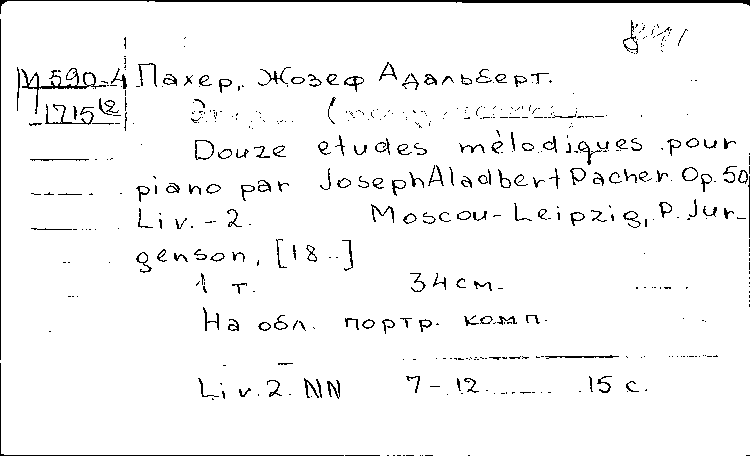 М 590-4 Пахер, Жозеф Адальберт.
1715(2
Douze etudes mélodiques pour
piano par Joseph Aladbert Pacher Op. 50
Liv. - 2. Moscou - Leipzig, P. Jur-
genson, [18..]
1 т. 34 см.
На обл. портр. комп.
Liv. 2. NN 7-12 15 с.